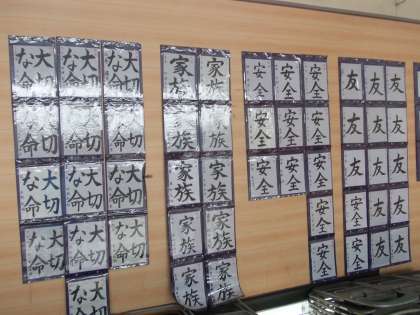 大切な命
大切な命
大切な命
大切な命
大切な命
大切な命
大切な命
大切な命
大切な命
大切な命
大切な命
大切な命
大切な命
大切な命
大切な命
大切な命
家族
家族
家族
家族
家族
家族
家族
家族
家族
家族
安全
安全
安全
安全
安全
安全
安全
安全
安全
安全
安全
友
友
友
友
友
友
友
友
友
友
友
友
友
友
友